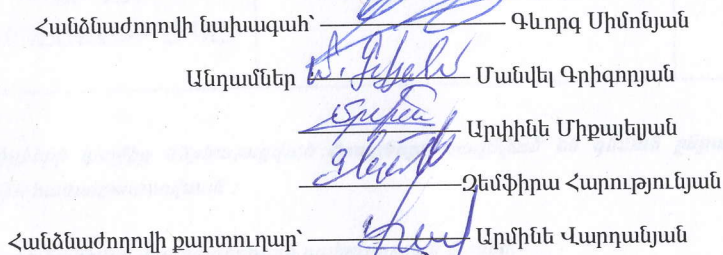 Հանձնաժողովի նախագահ՝ Գևորգ Սիմոնյան
Անդամներ Մանվել Գրիգորյան
Արփինե Միքայելյան
Զեմֆիրա Հարությունյան
Հանձնաժողովի քարտուղար՝ Արմինե Վարդանյան